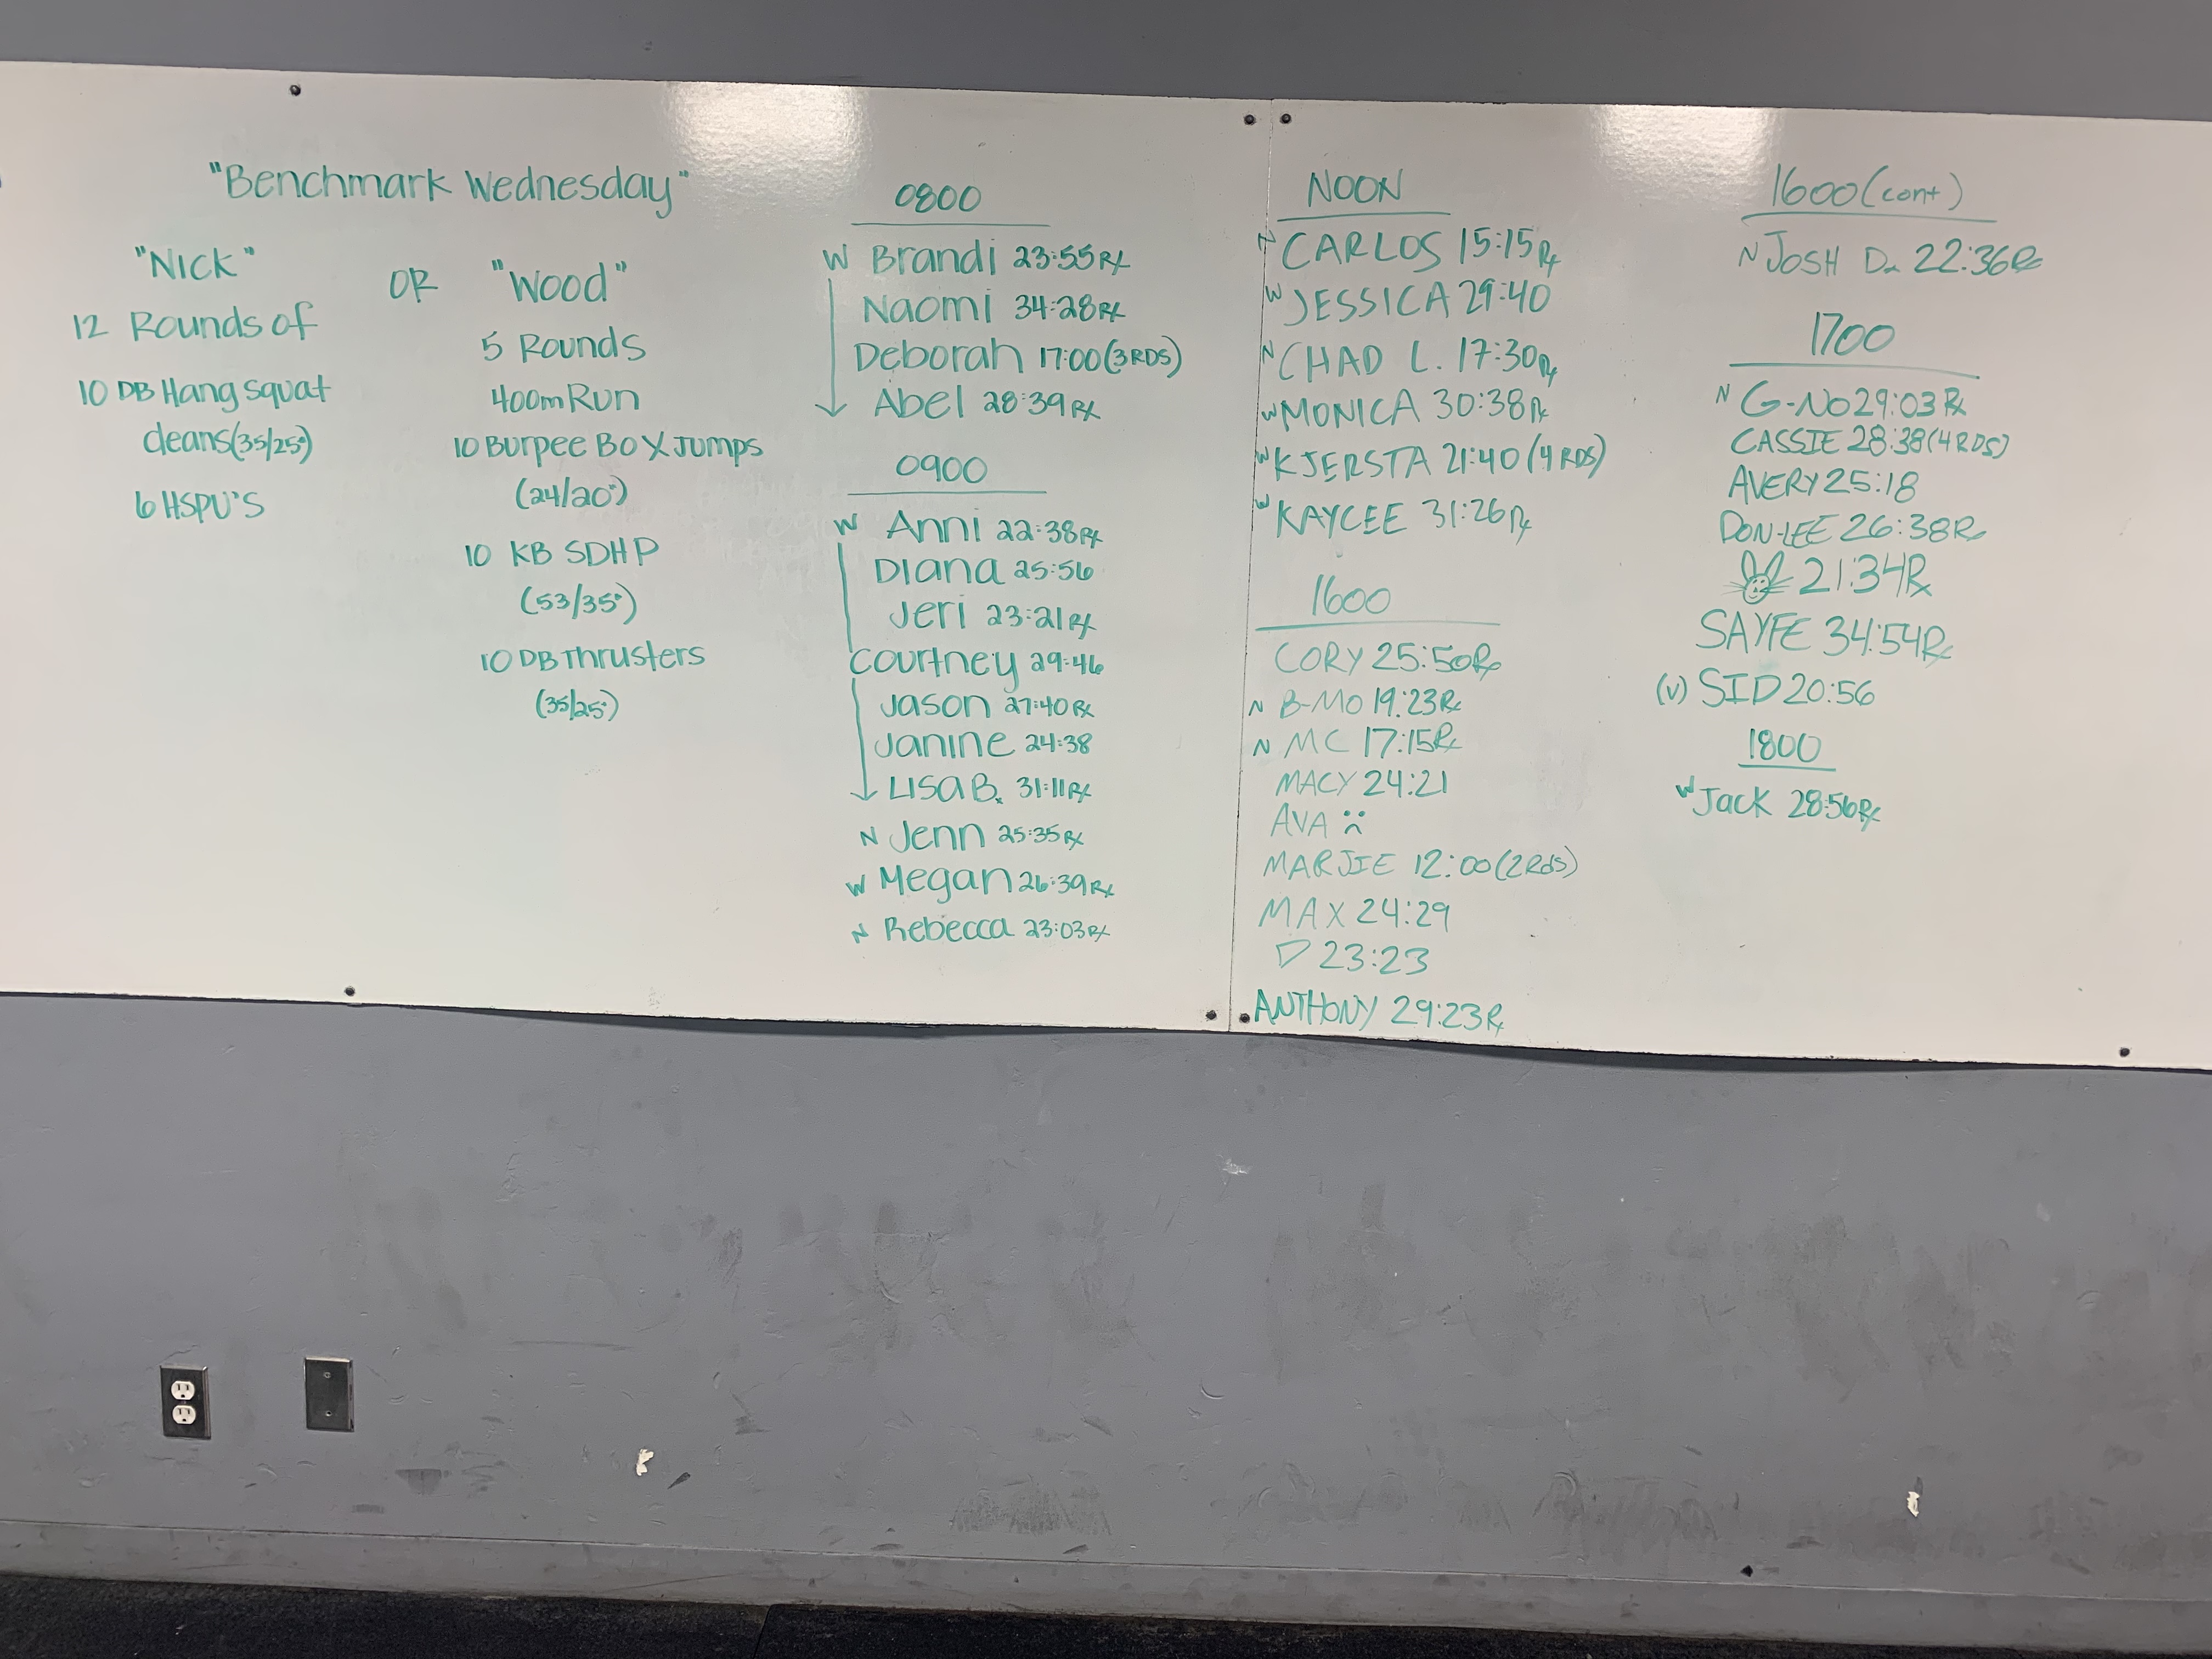 "Benchmark Wednesday"
"Nick"
12 Rounds of
10 DB Hang squat
cleans (35/25#)
6 HSPU'S
OR
"Wood"
5 Rounds
400m Run
10 Burpee Box Jumps
(24/20")
10 KB SDHP
(53/35#)
10 DB Thrusters
(35/25#)
0800
W Brandi 23:55 Rx
Naomi 34:28 Rx
Deborah 17:00 (3 RDS)
Abel 28:39 Rx
0900
W Anni 22:38 Rx
Diana 25:56
Jeri 23:21 Rx
Courtney 29:46
Jason 27:40 Rx
Janine 24:38
Lisa B. 31:11 Rx
N Jenn 25:35 Rx
W Megan 26:39 Rx
N Rebecca 23:03 Rx
NOON
N CARLOS 15:15 Rx
W JESSICA 29:40
N CHAD L. 17:30 Rx
W MONICA 30:38 Rx
W KJERSTA 21:40 (4 RDS)
W KAYCEE 31:26 Rx
1600
CORY 25:50 Rx
N B-MO 19:23 Rx
N MC 17:15 Rx
MACY 24:21
AVA
MARJIE 12:00 (2 Rds)
MAX 24:29
23:23
ANTHONY 29:23 Rx
1600 (cont)
N JOSH D. 22:36 Rx
1700
N G-NO 29:03 Rx
CASSIE 28:38 (4 RDS)
AVERY 25:18
DON-LEE 26:38 Rx
21:34 Rx
SAYFE 34:54 Rx
(v) SID 20:56
1800
W Jack 28:56 Rx